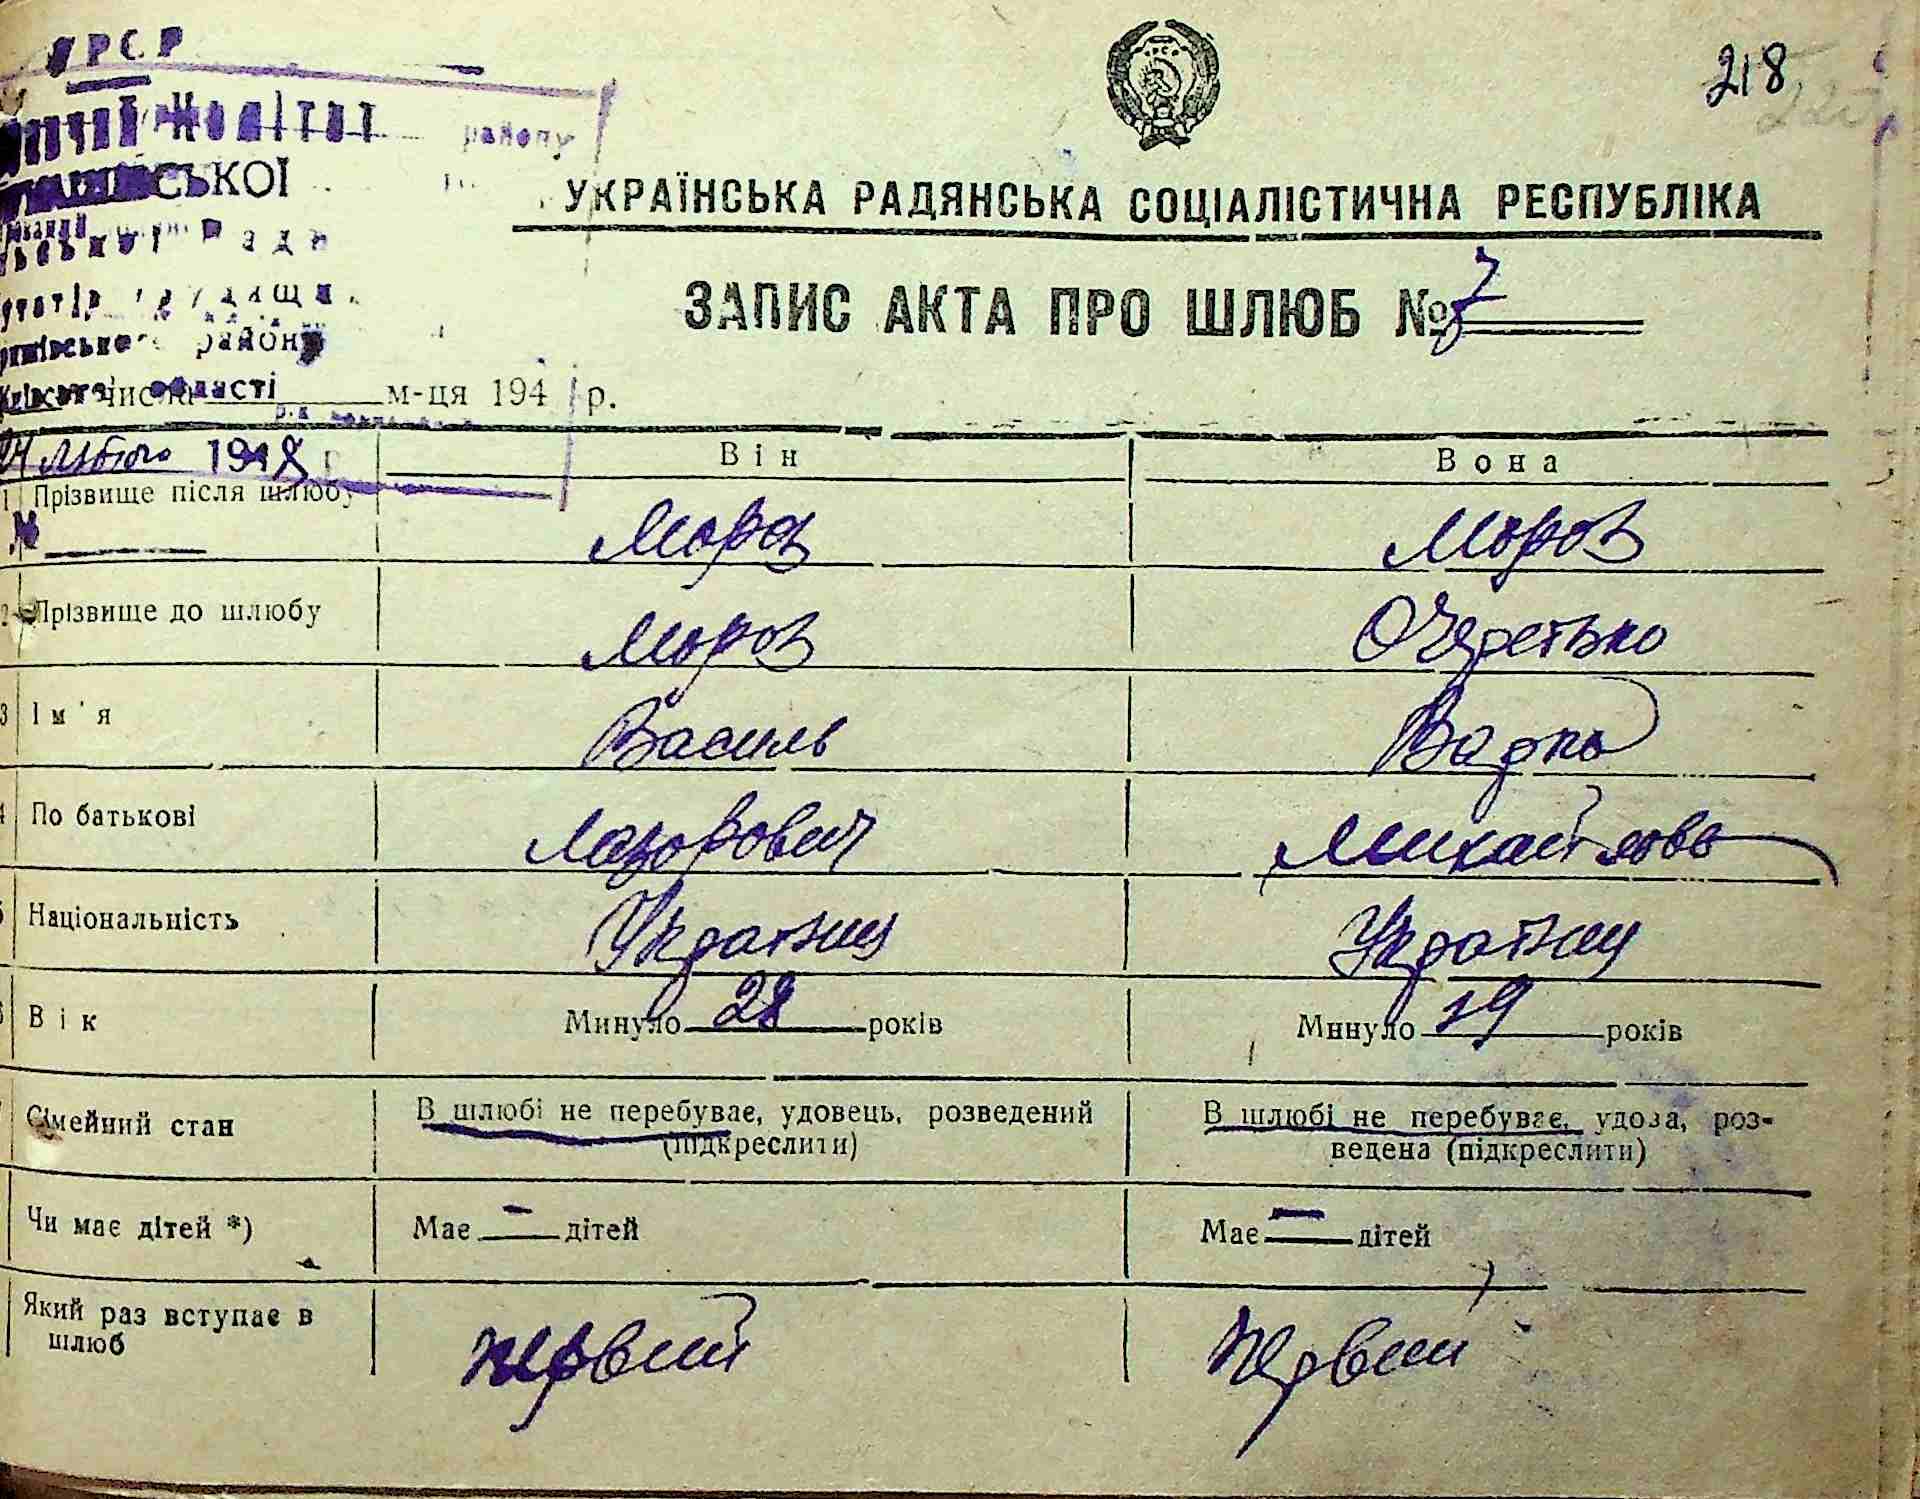 УРСР
218
Комітет
району
СЬКОЇ
Ради
району
області
УКРАЇНСЬКА РАДЯНСЬКА СОЦІАЛІСТИЧНА РЕСПУБЛІКА
ЗАПИС АКТА ПРО ШЛЮБ № 7
числа м-ця 194 р.
лютого 1948 р
Він Вона
1 Прізвище після шлюбу Мороз Мороз
№
2 Прізвище до шлюбу Мороз Очеретько
3 Ім'я Василь
4 По батькові Лазорович Михайловн
5 Національність Українец Україньц
6 Вік Минуло 28 років Минуло 19 років
Сімейний стан В шлюбі не перебуває, удовець, розведений (підкреслити) В шлюбі не перебуває, удова, роз-
ведена (підкреслити)
Чи має дітей *) Має — дітей Має — дітей
Який раз вступає в шлюб первий первий